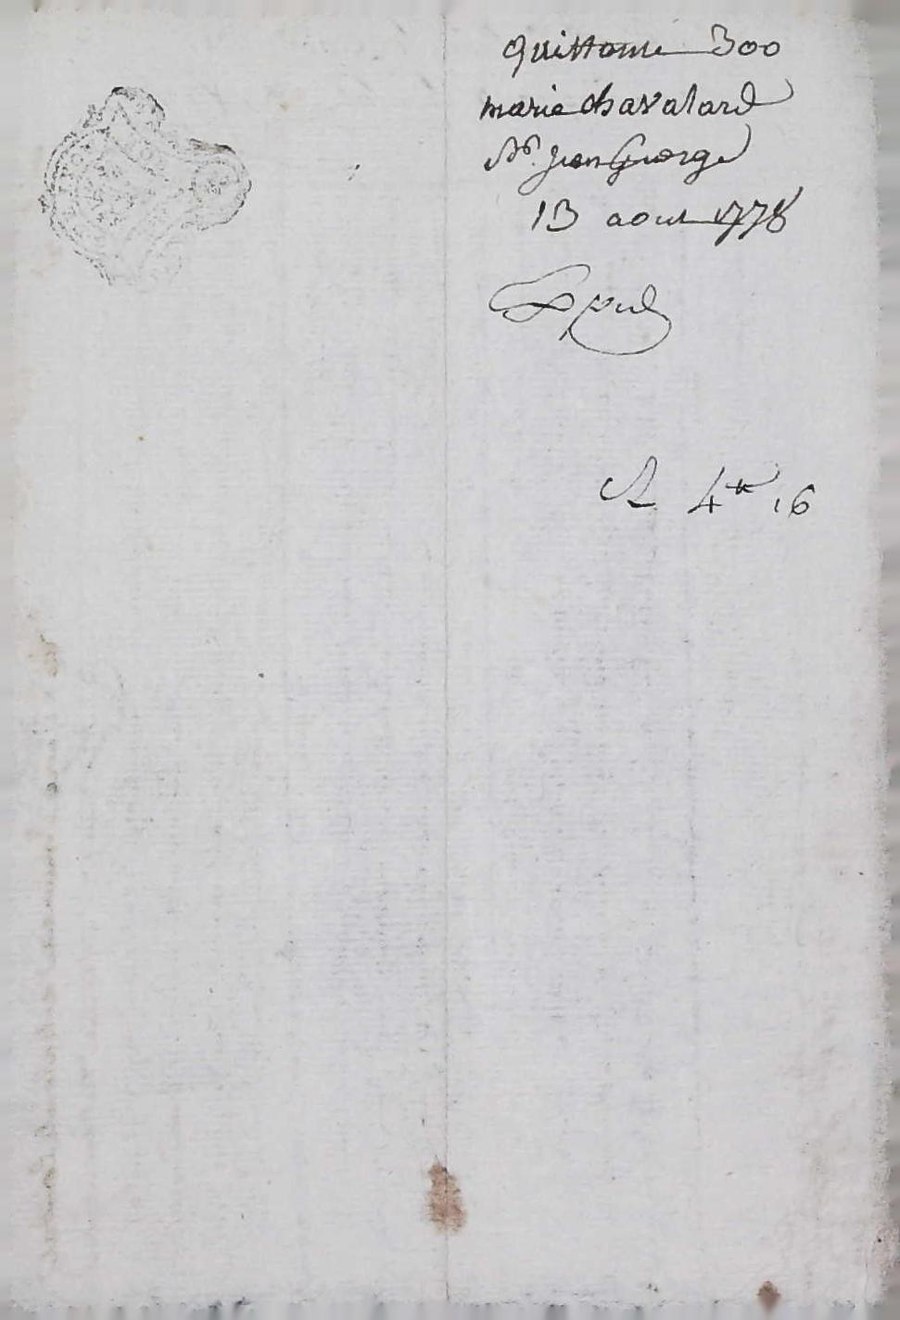 quittance 300
marie chavalard
Sr. Jean George
13 aout 1778
R 4tt 16